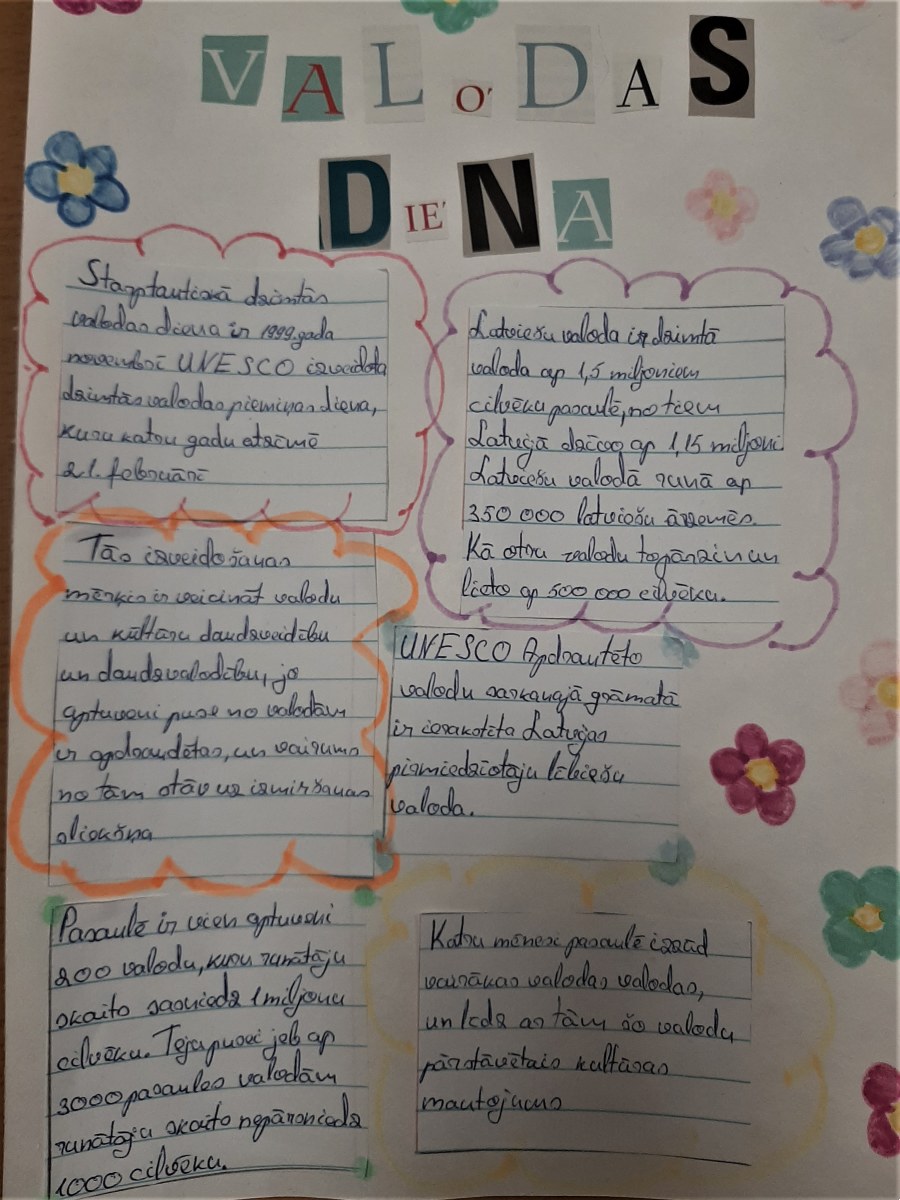 VALODAS
DIENA
Starptautiskā dzimtās
valodas diena ir 1999.gada
novembrī UNESCO izveidota
dzimtās valodas piemiņas diena,
kuru katru gadu atzīmē
21. februārī
Latviešu valoda ir dzimtā
valoda ap 1,5 miljoniem
cilvēku pasaulē, no tiem
Latvijā dzīvo ap 1,15 miljoni.
Latviešu valodā runā ap
350 000 latviešu ārzemēs.
Kā otru valodu to pārzin un
lieto ap 500 000 cilvēku.
Tās izveidošanas
mērķis ir veicināt valodu
un kultūru daudzveidību
un daudzvalodību, jo
aptuveni puse no valodām
ir apdraudētas, un vairums
no tām stāv uz izmiršanas
sliekšņa
UNESCO Apdraudēto
valodu sarkanajā grāmatā
ir ierakstīta Latvijas
pirmiedzīvotāju lībiešu
valoda.
Pasaulē ir vien aptuveni
200 valodu, kuru runātāju
skaits sasniedz 1 miljonu
cilvēku. Teju pusei jeb ap
3000 pasaules valodām
runātāju skaits nepārsniedz
1000 cilvēku.
Katru mēnesi pasaulē izzūd
vairākas valodas valodas,
un līdz ar tām šo valodu
pārstāvētais kultūras
mantojums